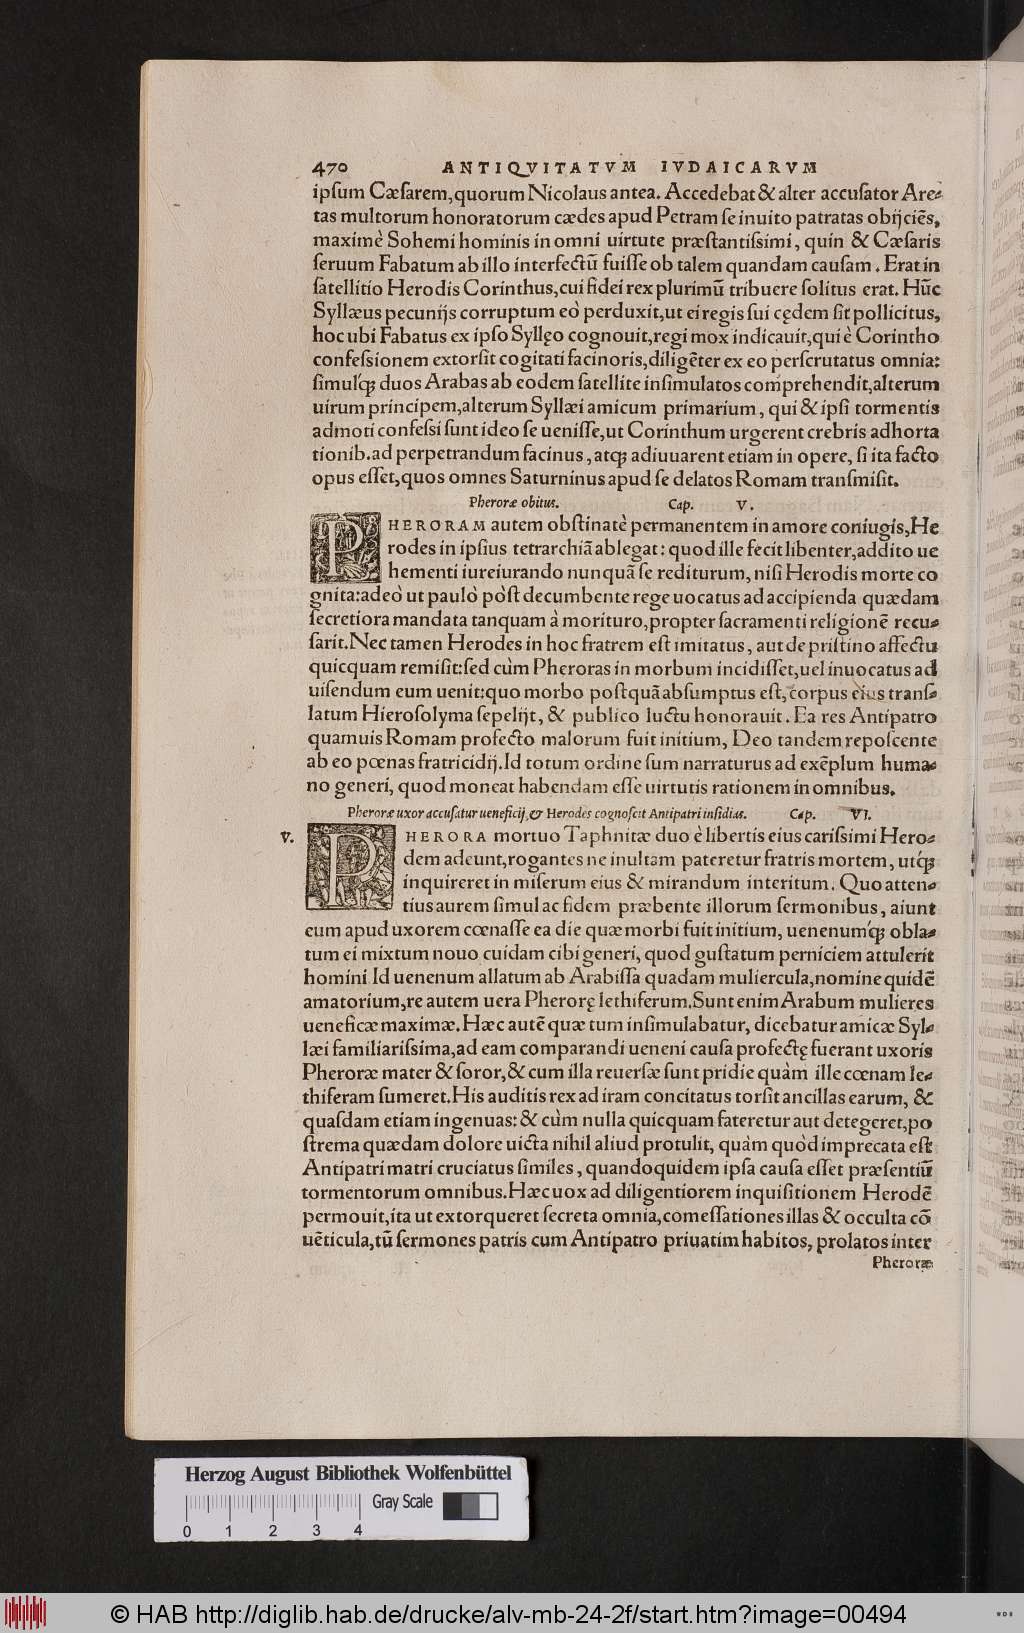 470 ANTIQVITATVM IVDAICARVM
ipſum Cæſarem, quorum Nicolaus antea. Accedebat & alter accuſator Are-
tas multorum honoratorum cædes apud Petram ſe inuito patratas obijciẽs,
maximè Sohemi hominis in omni uirtute præſtantiſsimi, quin & Cæſaris
ſeruum Fabatum ab illo interfectũ fuiſſe ob talem quandam cauſam. Erat in
ſatellitio Herodis Corinthus, cui fidei rex plurimũ tribuere ſolitus erat. Hũc
Syllæus pecunijs corruptum eò perduxit, ut ei regis ſui cędem ſit pollicitus,
hoc ubi Fabatus ex ipſo Syllęo cognouit, regi mox indicauit, qui è Corintho
confeſsionem extorſit cogitati facinoris, diligẽter ex eo perſcrutatus omnia:
ſimulq́; duos Arabas ab eodem ſatellite inſimulatos comprehendit, alterum
uirum principem, alterum Syllæi amicum primarium, qui & ipſi tormentis
admoti confeſsi ſunt ideo ſe ueniſſe, ut Corinthum urgerent crebris adhorta
tionib. ad perpetrandum facinus, atq; adiuuarent etiam in opere, ſi ita facto
opus eſſet, quos omnes Saturninus apud ſe delatos Romam tranſmiſit.
Pheroræ obitus. Cap. V.
PHERORAM autem obſtinatè permanentem in amore coniugis, He
rodes in ipſius tetrarchiã ablegat: quod ille fecit libenter, addito ue
hementi iureiurando nunquã ſe rediturum, niſi Herodis morte co
gnita: adeò ut paulò pòſt decumbente rege uocatus ad accipienda quædam
ſecretiora mandata tanquam à morituro, propter ſacramenti religionẽ recu-
ſarit. Nec tamen Herodes in hoc fratrem eſt imitatus, aut de priſtino affectu
quicquam remiſit: ſed cùm Pheroras in morbum incidiſſet, uel inuocatus ad
uiſendum eum uenit: quo morbo poſtquã abſumptus eſt, corpus eius tranſ-
latum Hieroſolyma ſepelijt, & publico luctu honorauit. Ea res Antipatro
quamuis Romam profecto malorum fuit initium, Deo tandem repoſcente
ab eo pœnas fratricidij. Id totum ordine ſum narraturus ad exẽplum huma-
no generi, quod moneat habendam eſſe uirtutis rationem in omnibus.
Pheroræ uxor accuſatur ueneficij, & Herodes cognoſcit Antipatri inſidias. Cap. VI.
V. PHERORA mortuo Taphnitæ duo è libertis eius cariſsimi Hero-
dem adeunt, rogantes ne inultam pateretur fratris mortem, utq́;
inquireret in miſerum eius & mirandum interitum. Quo atten-
tius aurem ſimul ac fidem præbente illorum ſermonibus, aiunt
eum apud uxorem cœnaſſe ea die quæ morbi fuit initium, uenenumq́; obla-
tum ei mixtum nouo cuidam cibi generi, quod guſtatum perniciem attulerit
homini Id uenenum allatum ab Arabiſſa quadam muliercula, nomine quidẽ
amatorium, re autem uera Pherorę lethiferum. Sunt enim Arabum mulieres
ueneficæ maximæ. Hæc autẽ quæ tum inſimulabatur, dicebatur amicæ Syl-
læi familiariſsima, ad eam comparandi ueneni cauſa profectę fuerant uxoris
Pheroræ mater & ſoror, & cum illa reuerſæ ſunt pridie quàm ille cœnam le-
thiferam ſumeret. His auditis rex ad iram concitatus torſit ancillas earum, &
quaſdam etiam ingenuas: & cùm nulla quicquam fateretur aut detegeret, po
ſtrema quædam dolore uicta nihil aliud protulit, quàm quòd imprecata eſt
Antipatri matri cruciatus ſimiles, quandoquidem ipſa cauſa eſſet præſentiũ
tormentorum omnibus. Hæc uox ad diligentiorem inquiſitionem Herodẽ
permouit, ita ut extorqueret ſecreta omnia, comeſſationes illas & occulta cõ
uẽticula, tũ ſermones patris cum Antipatro priuatim habitos, prolatos inter
Pheroræ
Herzog August Bibliothek Wolfenbüttel
Gray Scale
0 1 2 3 4
© HAB http://diglib.hab.de/drucke/alv-mb-24-2f/start.htm?image=00494